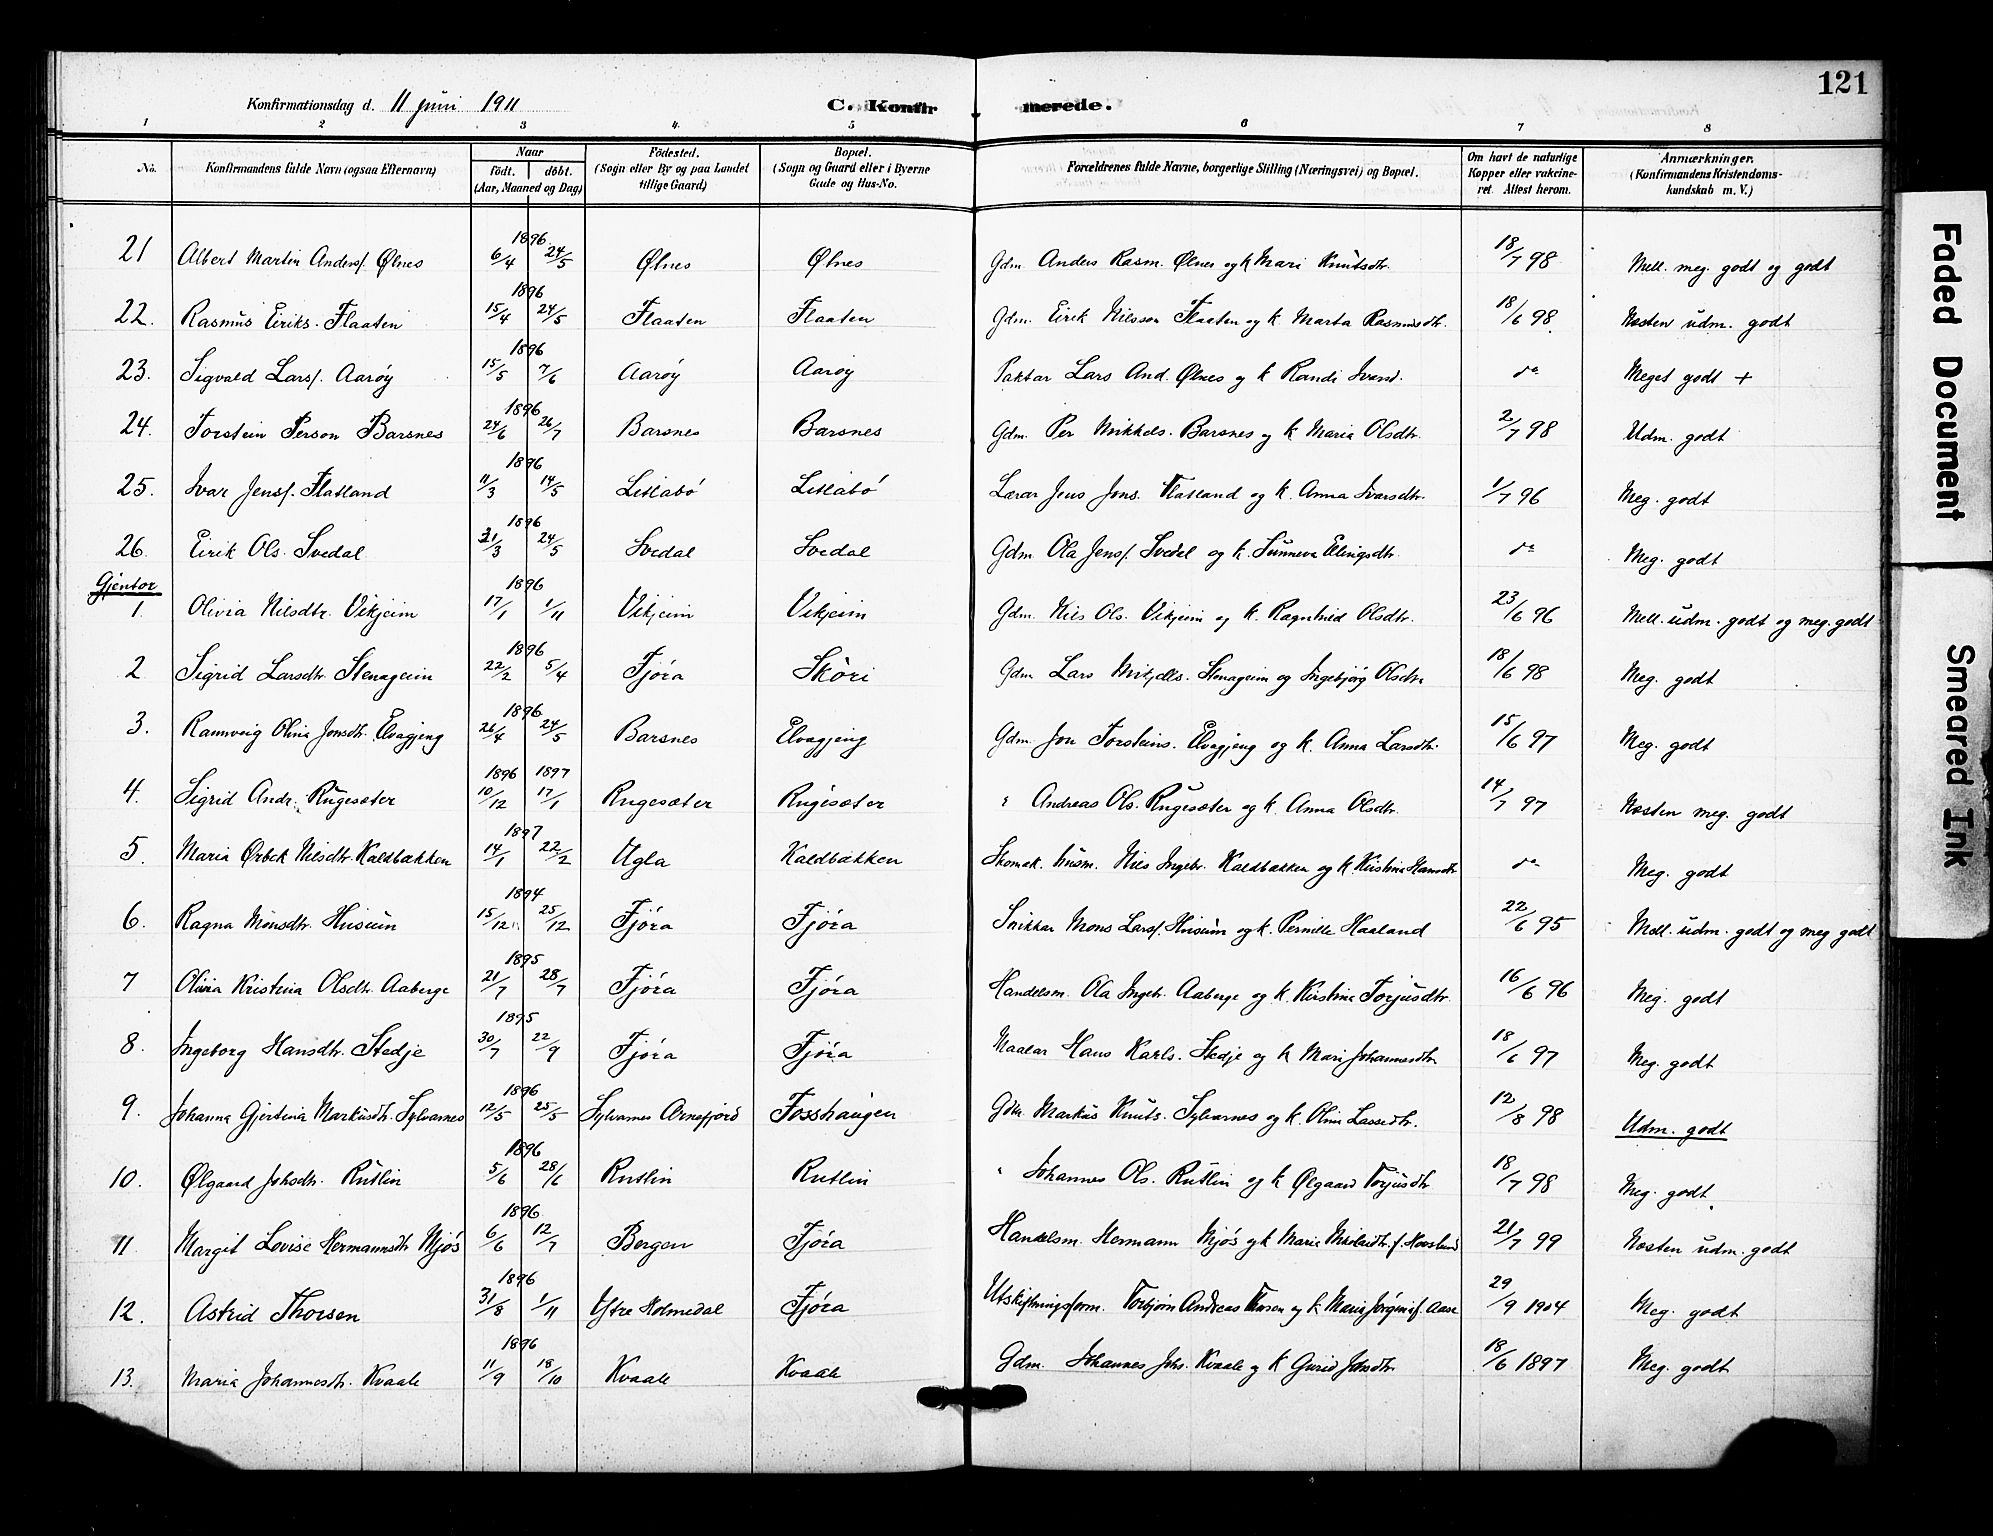 121
Konfirmationsdag d. 11 juni 1911 C. Konfirmerede.
1 2 3 4. 5 6 7 8
No. Konfirmandens fulde Navn (ogsaa Efternavn) Naar født. døbt. (Aar, Maaned og Dag) Födested. (Sogn eller By og paa Landet tillige Gaard) Bopæl. (Sogn og Gaard eller i Byerne Gade og Hus-No. Forældrenes fulde Navne, borgerlige Stilling (Næringsvei) og Bopæl. Om havt de naturlige Kopper eller vakcineret. Attest herom. Anmærkninger. (Konfirmandens Kristendomskundskab m. V.)
21 Albert Martin Andersf. Ølnes 1896 6/4 24/5 Ølnes Ølnes Gdm. Anders Rasm. Ølnes og k Mari Knutsdtr. 18/7 98 Mell. meg. godt og godt
22. Rasmus Eiriks. Flaaten 1896 15/4 24/5 Flaaten Flaaten Gdm. Eirik Nilsson Flaaten og k. Marta Rasmusdtr. 18/6 98. Næsten udm. godt
23. Sigvald Larsf. Aarøy 1896 15/5 7/6 Aarøy Aarøy Paktar Lars And. Ølnes og k Randi Ivarsd. do Meget godt +
24. Torstein Person Barsnes 1896 24/6 26/7 Barsnes Barsnes Gdm. Per Mikkels. Barsnes og k Maria Olsdtr. 2/7 98 Udm. godt
25. Ivar Jensf. Flatland 1896 11/3 14/5 Litlabø Litlabø Lærar Jens Jons. Flatland og k. Anna Ivarsdtr. 1/7 96 Meg. godt
26. Eirik Ols. Svedal 1896 21/3 24/5 Svedal Svedal Gdm. Ola Jensf. Svedal og k. Sunneva Ellingsdtr. do Meg. godt
Gjentor
1. Olivia Nilsdtr. Vikjeim 1896 17/1 1/11 Vikjeim Vikjeim Gdm. Nils Ols. Vikjeim og k. Ragnhild Olsdtr. 23/6 96 Mell. udm. godt og meg. godt
2 Sigrid Larsdtr. Stenageim 1896 22/2 5/4 Fjøra Skøri Gdm. Lars Mikjells. Stenageim og Ingebjørg Olsdtr. 18/6 98 Meg. godt
3. Ramveig Olina Jonsdtr. Elvagjeng 1896 26/4 24/5 Barsnes Elvagjeng Gdm. Jon Torsteins. Elvagjeng og k. Anna Larsdtr. 15/6 97 Meg. godt
4. Sigrid Andr. Rugesæter 1896 10/12 1897 17/1 Rugesæter Rugesæter " Andreas Ols. Rugesæter og k. Anna Olsdtr. 14/7 97 Næsten meg. godt
5. Maria Ørbek Nilsdtr. Kaldbakken 1897 14/1 22/2 Ugla Kaldbakken Skomak. husm. Nils Ingebr. Kaldbakken og k. Kirstina Hansdtr do Meg. godt
6. Ragna Monsdtr. Husum 1894 15/12 25/12 Fjøra Fjøra Snikkar Mons Larsf. Husum og k. Pernille Haaland 22/6 95 Mell. udm. godt og meg godt
7 Olivia Kristina Olsdtr. Aaberge 1895 21/7 28/7 Fjøra Fjøra Handelsm. Ola Ingebr. Aaberge og k. Kirstine Torjusdtr. 16/6 96 Meg. godt
8. Ingeborg Hansdtr. Stedje 1895 30/7 22/9 Fjøra Fjøra Maalar Hans Karls. Stedje og k Mari Johannesdtr 18/6 97 Meg. godt
9. Johanna Gjertina Markusdtr. Sylvarnes 1896 12/5 25/5 Sylvarnes Arnefjord Fosshaugen Gdm. Markus Knuts. Sylvarnes og k. Olina Lassedtr. 12/8 98 Udm. godt
10. Ølgaard Johsdtr. Rutlin 1896 5/6 28/6 Rutlin Rutlin " Johannes Ols. Rutlin og k Ølgaard Torjusdtr 18/7 98 Meg. godt.
11. Margit Lovise Hermannsdtr Mjøs 1896 6/6 12/7 Bergen Fjøra Handelsm. Hermann Mjøs og k Marie Nikolaidtr. f. 21/7 99 Næsten udm. godt
12. Astrid Thorsen 1896 31/8 1/11 Ytre Holmedal Fjøra Utskiftningsform. Torbjørn Andreas Thorsen og k. Maria f. Aase 29/9 1904 Meg. godt
13. Maria Johannesdtr. Kvaale 1896 11/9 18/10 Kvaale Kvaale Gdm. Johannes Johs. Kvaale og k Gurid Johsdtr. 18/6 1897 Meg. godt
Faded Document
Smeared Ink